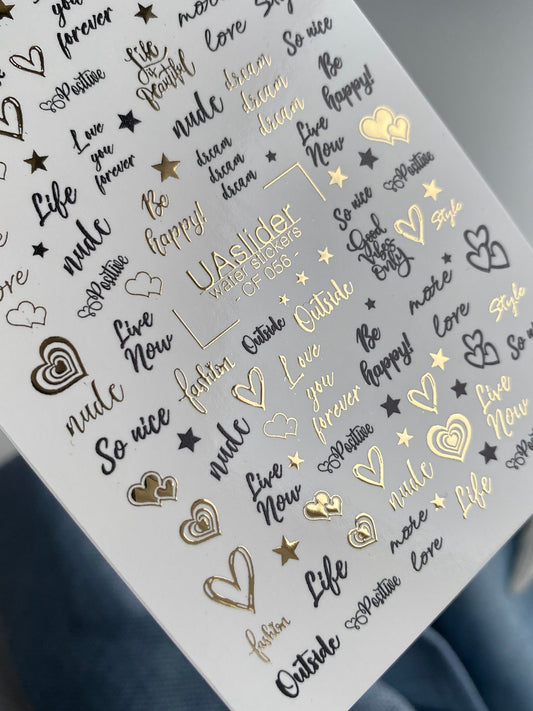 you
forever
more
love
Style
So nice
Positive
Life
is
beautiful
dream
dream
dream
Be
happy!
Love
you
forever
nude
dream
dream
dream
Live
Now
Life
Be
happy!
So nice
Positive
nude
UAslider
water stickers
- CF 056 -
Good
Vibes
Only
Style
Positive
Outside
more
love
Live
Now
fashion
Outside
Love
you
forever
Be
happy!
Style
So
nude
So nice
nude
Positive
Live
Now
Live
Now
nude
Life
Positive
Life
more
love
fashion
Positive
Outside